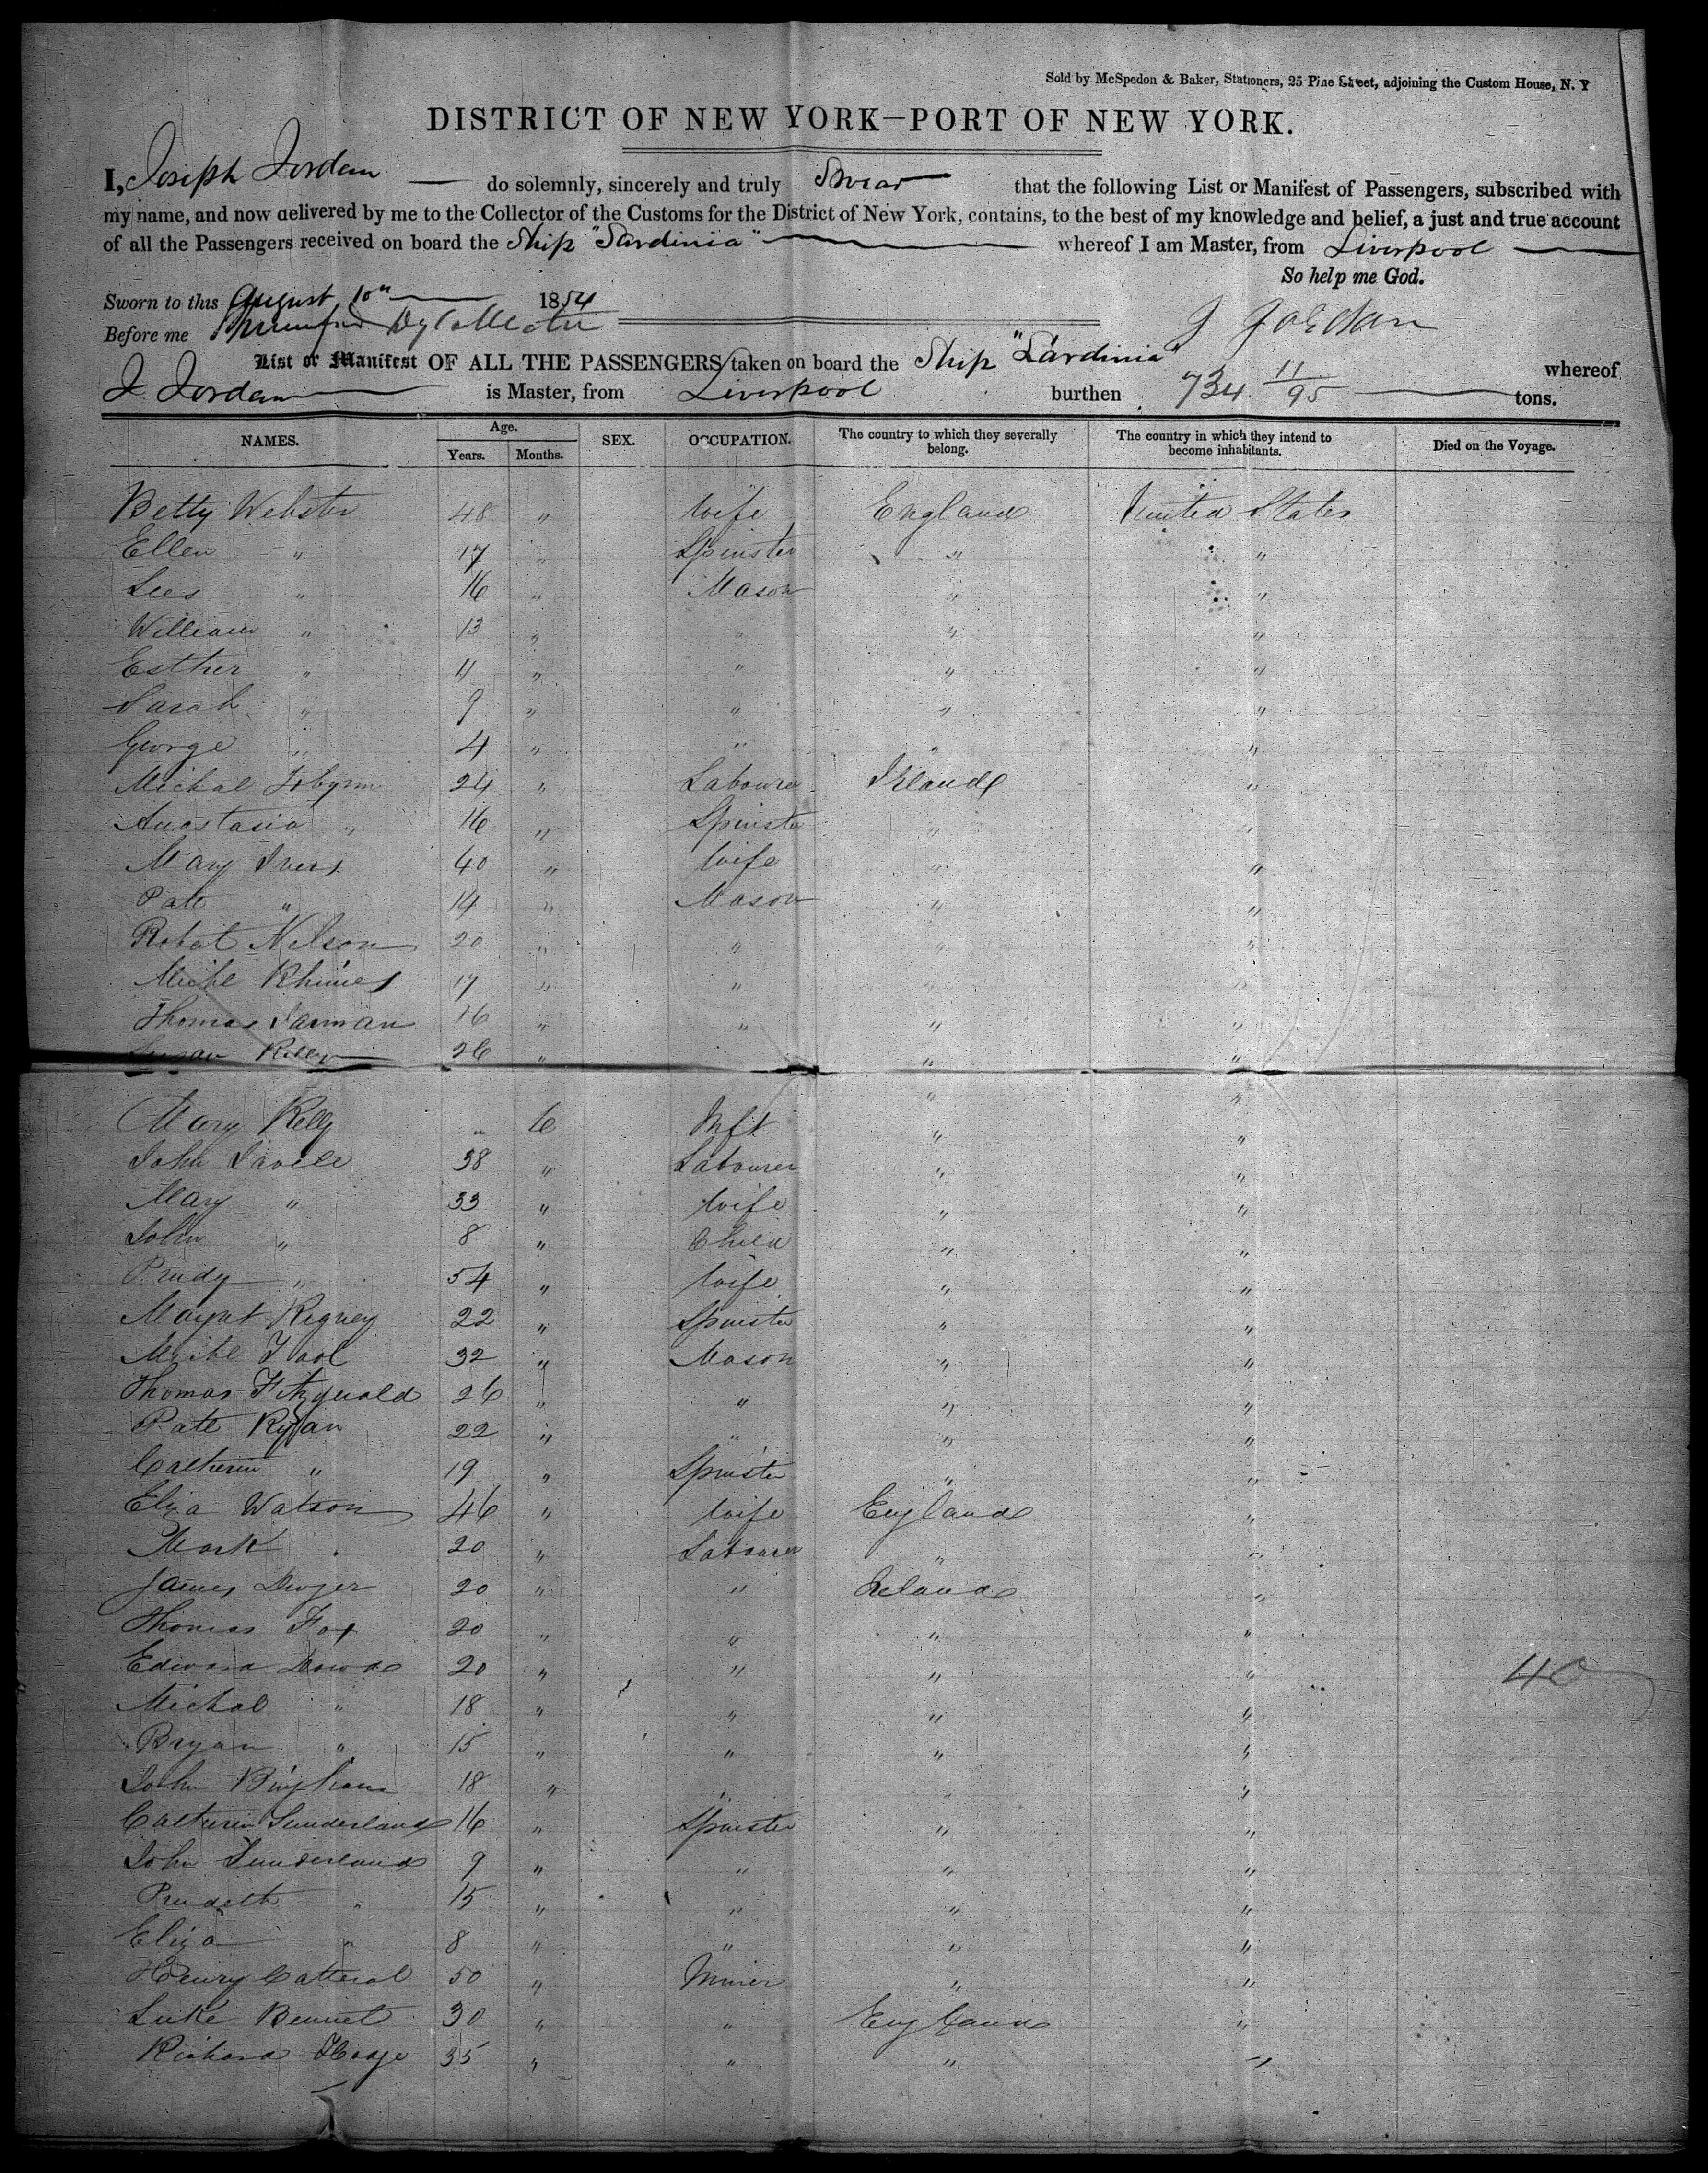 Sold by McSpedon & Baker, Stationers, 25 Pine Street, adjoining the Custom House, N. Y
DISTRICT OF NEW YORK—PORT OF NEW YORK.
I, Joseph Jordan do solemnly, sincerely and truly Swear that the following List or Manifest of Passengers, subscribed with
my name, and now delivered by me to the Collector of the Customs for the District of New York, contains, to the best of my knowledge and belief, a just and true account
of all the Passengers received on board the Ship "Sardinia" whereof I am Master, from Liverpool
So help me God.
Sworn to this August 10th 1854
Before me J Jordan
List or Manifest OF ALL THE PASSENGERS taken on board the Ship "Sardinia" whereof
J. Jordan is Master, from Liverpool burthen 734 11/95 tons.
NAMES. Age. Years. Months. SEX. OCCUPATION. The country to which they severally belong. The country in which they intend to become inhabitants. Died on the Voyage.
Betty Webster 48 " Wife England United States
Ellen " 17 " Spinster " "
Lees " 16 " Mason " "
William " 13 " " " "
Esther " 11 " " " "
Sarah " 9 " " " "
George " 4 " " " "
Michal 24 " Labourer Irland "
Anastasia " 16 " Spinster " "
Mary Ivers 40 " Wife " "
Patt " 14 " Mason " "
Robat Nelson 20 " " " "
Michl Rhines 17 " " " "
Thomas 16 " " " "
Susan Kelly 26 " " "
Mary Kelly " 6 Inft " "
John 38 " Labourer " "
Mary " 33 " Wife " "
John " 8 " Child " "
Prudy " 54 " Wife " "
Margrt Rigney 22 " Spinster " "
Michl 32 " Mason " "
Thomas Fitzgerald 26 " " " "
Patt Ryan 22 " " " "
Catherin " 19 " Spinster " "
Eliza Watson 46 " Wife England "
Mark " 20 " Labourer " "
James Dwyer 20 " " Ireland "
Thomas Fox 20 " " " "
Edward Dowd 20 " " " " 40
Michal " 18 " " " "
Bryan " 15 " " " "
John Bingham 18 " " " "
Catherin Sunderland 16 " Spinster " "
John Sunderland 9 " " " "
Prudeth " 15 " " " "
Eliza " 8 " " " "
Henry Catteral 50 " Miner " "
Luke Bennet 30 " " England "
Richard 35 " " " "